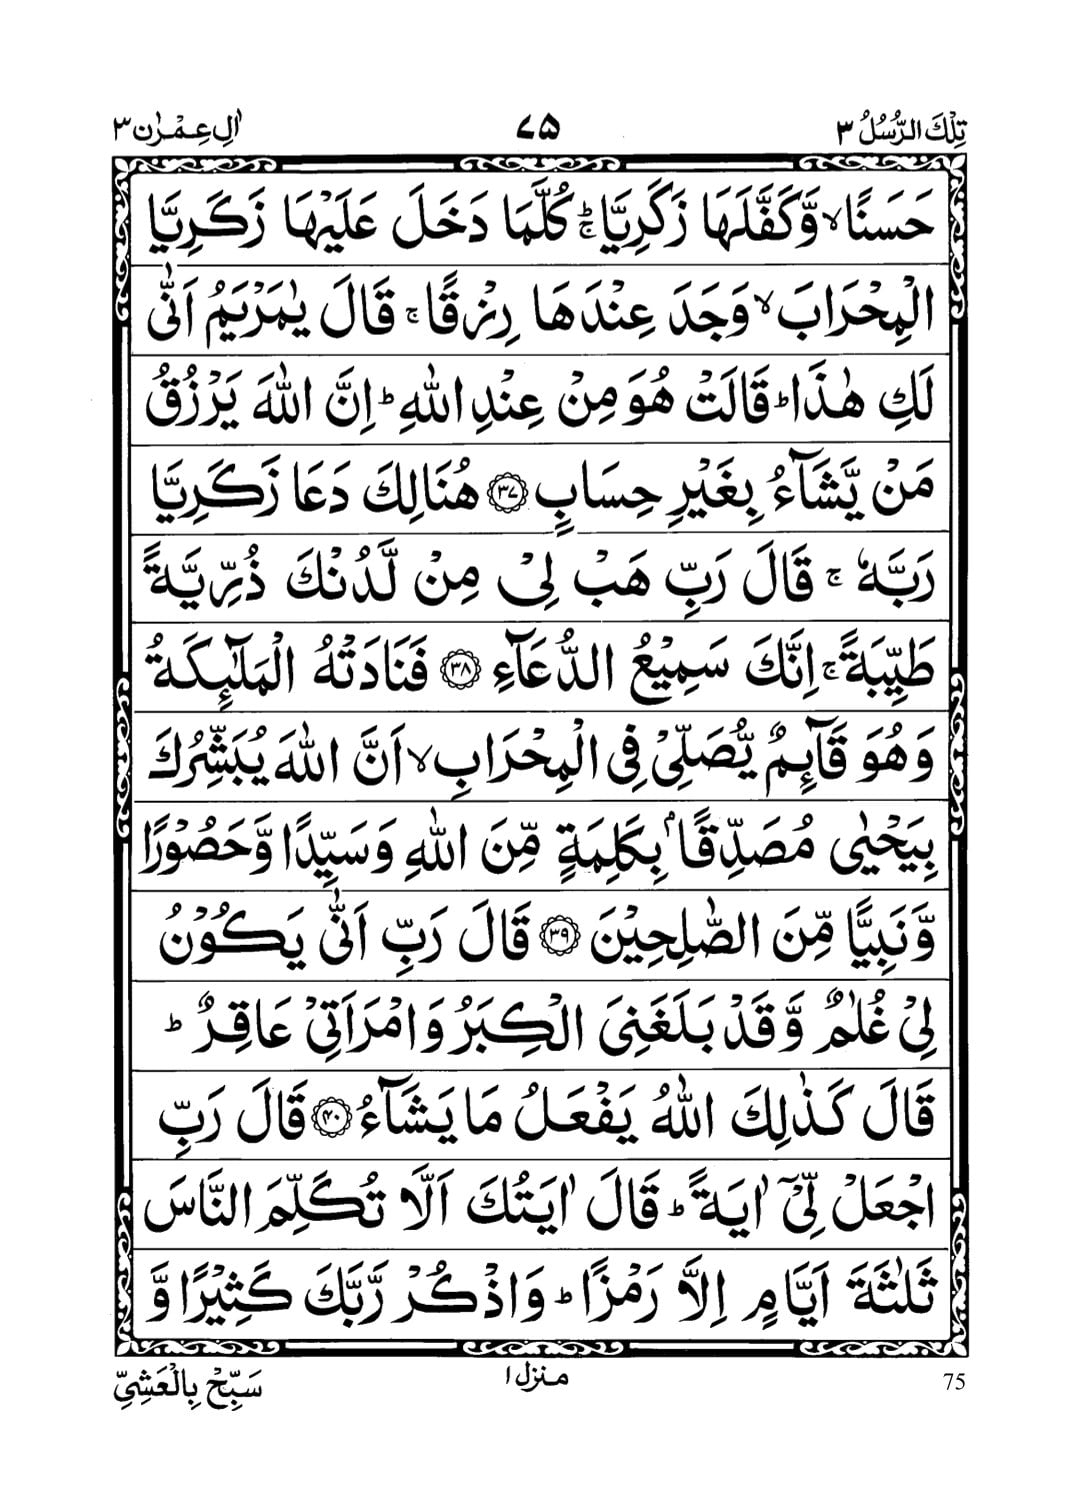 تِلْكَ الرُّسُلُ ٣
٧٥
اٰلِ عِمْرٰن ٣
حَسَنًا ۙ وَّكَفَّلَهَا زَكَرِيَّا ۚؕ كُلَّمَا دَخَلَ عَلَيْهَا زَكَرِيَّا
الْمِحْرَابَ ۙ وَجَدَ عِنْدَهَا رِزْقًا ۚ قَالَ يٰمَرْيَمُ اَنّٰى
لَكِ هٰذَا ؕ قَالَتْ هُوَ مِنْ عِنْدِ اللّٰهِ ؕ اِنَّ اللّٰهَ يَرْزُقُ
مَنْ يَّشَآءُ بِغَيْرِ حِسَابٍ ﴿٣٧﴾ هُنَالِكَ دَعَا زَكَرِيَّا
رَبَّهٗ ۚ قَالَ رَبِّ هَبْ لِيْ مِنْ لَّدُنْكَ ذُرِّيَّةً
طَيِّبَةً ۚ اِنَّكَ سَمِيْعُ الدُّعَآءِ ﴿٣٨﴾ فَنَادَتْهُ الْمَلٰٓئِكَةُ
وَهُوَ قَآئِمٌ يُّصَلِّيْ فِى الْمِحْرَابِ ۙ اَنَّ اللّٰهَ يُبَشِّرُكَ
بِيَحْيٰى مُصَدِّقًاۢ بِكَلِمَةٍ مِّنَ اللّٰهِ وَسَيِّدًا وَّحَصُوْرًا
وَّنَبِيًّا مِّنَ الصّٰلِحِيْنَ ﴿٣٩﴾ قَالَ رَبِّ اَنّٰى يَكُوْنُ
لِيْ غُلٰمٌ وَّقَدْ بَلَغَنِيَ الْكِبَرُ وَامْرَاَتِيْ عَاقِرٌ ؕ
قَالَ كَذٰلِكَ اللّٰهُ يَفْعَلُ مَا يَشَآءُ ﴿٤٠﴾ قَالَ رَبِّ
اجْعَلْ لِّيْٓ اٰيَةً ؕ قَالَ اٰيَتُكَ اَلَّا تُكَلِّمَ النَّاسَ
ثَلٰثَةَ اَيَّامٍ اِلَّا رَمْزًا ؕ وَاذْكُرْ رَّبَّكَ كَثِيْرًا وَّ
75
منزل ١
سَبِّحْ بِالْعَشِيِّ